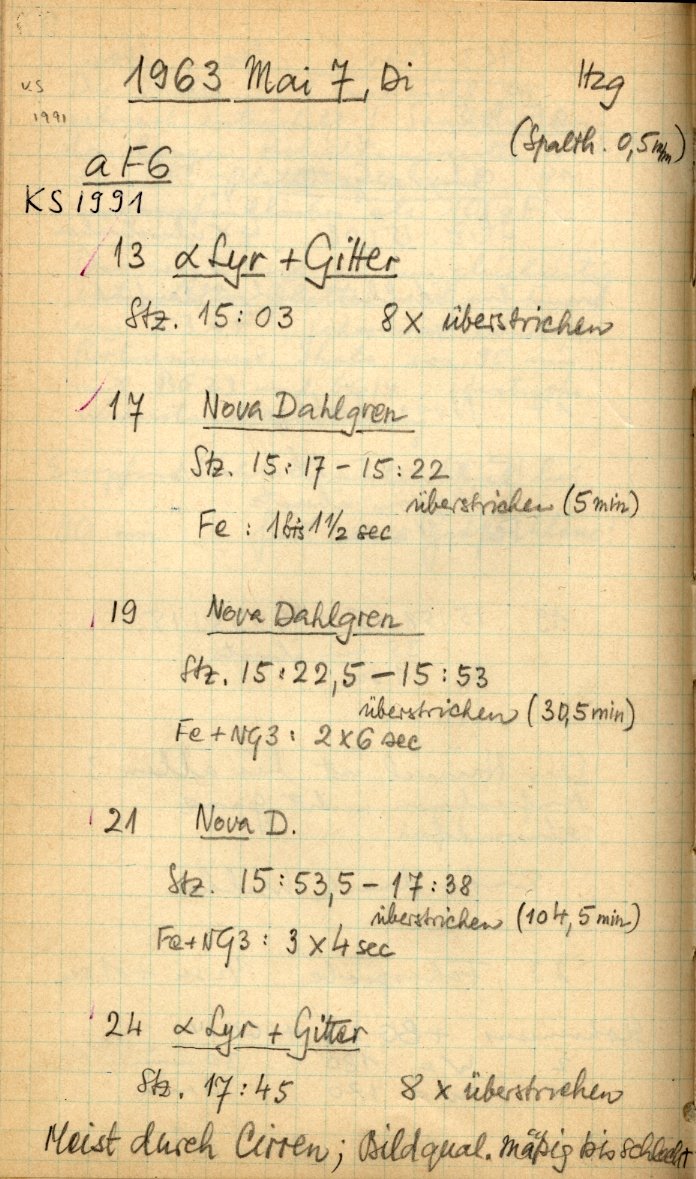 1963 Mai 7, Di Hzg
VS
1991
(Spalth. 0,5mm)
a F6
KS 1991
13 α Lyr + Gitter
Stz. 15:03 8 x überstrichen
17 Nova Dahlgren
Stz. 15:17 - 15:22
überstrichen (5 min)
Fe : 1 bis 1 1/2 sec
19 Nova Dahlgren
Stz. 15:22,5 - 15:53
überstrichen (30,5 min)
Fe + NG3 : 2 x 6 sec
21 Nova D.
Stz. 15:53,5 - 17:38
überstrichen (104,5 min)
Fe + NG3 : 3 x 4 sec
24 α Lyr + Gitter
Stz. 17:45 8 x überstrichen
Meist durch Cirren; Bildqual. mäßig bis schlecht